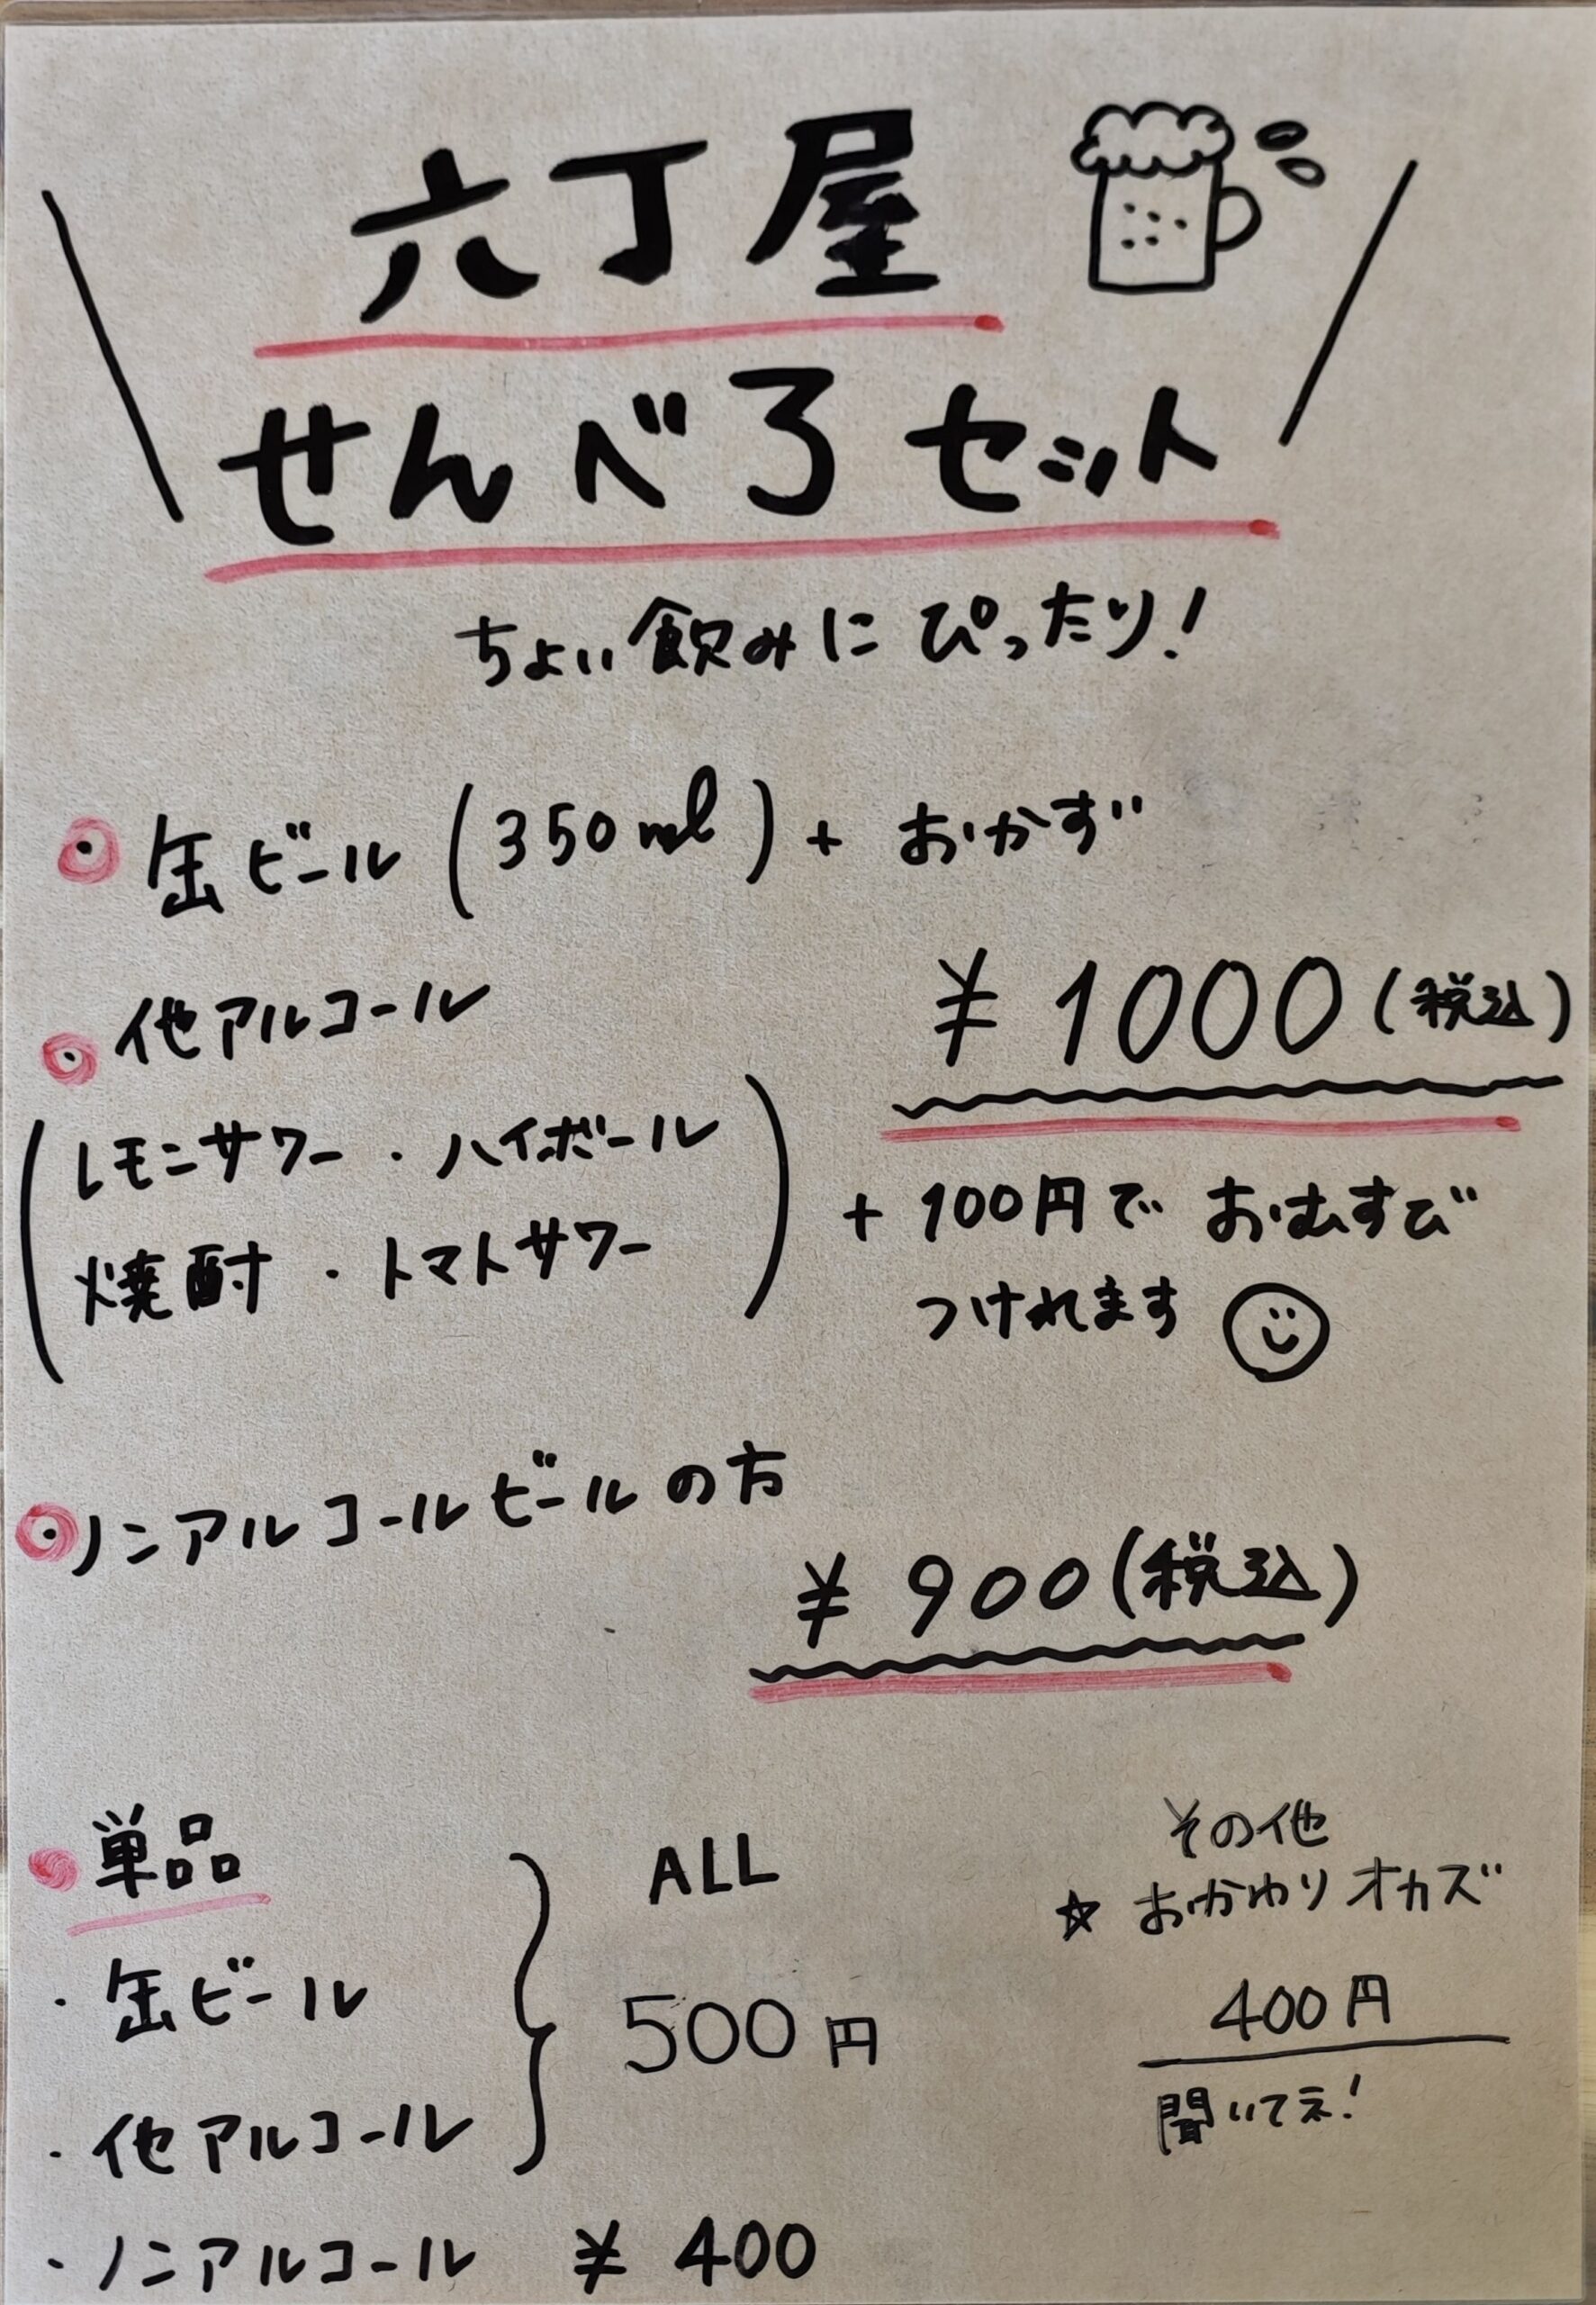 六丁屋
せんべろセット
ちょい飲みにぴったり!
缶ビール(350ml)+ おかず
他アルコール
¥1000(税込)
(レモンサワー・ハイボール
焼酎・トマトサワー)
+100円でおむすび
つけれます
ノンアルコールビールの方
¥900(税込)
単品
・缶ビール
・他アルコール
ALL
500円
・ノンアルコール ¥400
その他
☆おかわりオカズ
400円
聞いてネ!